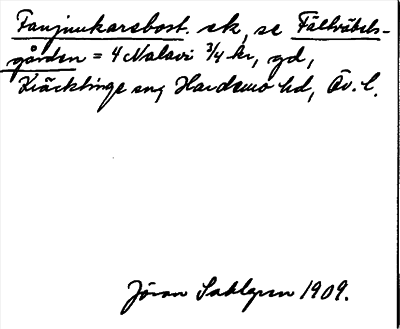 Fanjunkarebost. sk, se Fältväbels-
gården = 4 Nalavi 3/4 kr, gd,
Kräcklinge sn, Hardemo hd, Ör. l.
Jöran Sahlgren 1909.